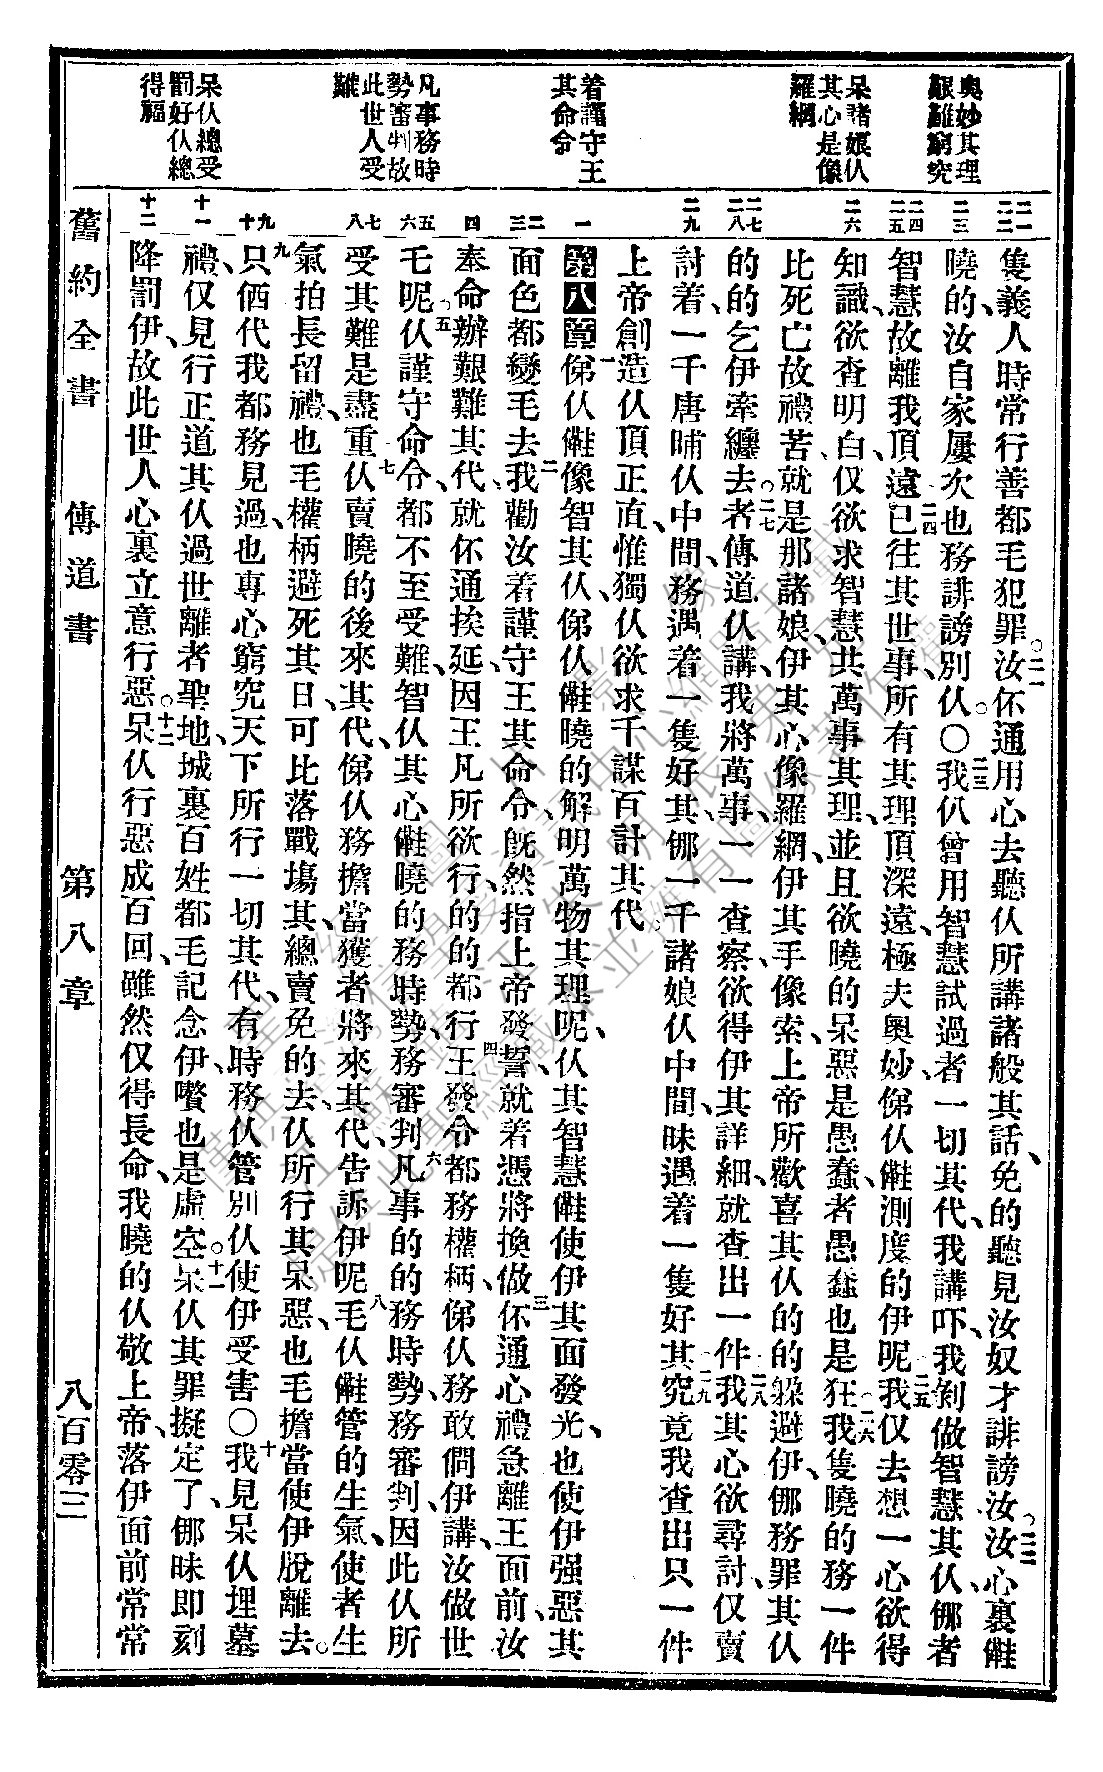 奧妙其理
艱難窮究
呆諸娘仈
其心是像
羅網
着謹守王
其命令
凡事務時
勢審判故
此世人受
難
呆仈總受
罰好仈總
得福
二一
二二
二三
二四
二五
二六
二七
二八
二九
一
二
三
四
五
六
七
八
九
十
十一
十二
隻義人時常行善都毛犯罪。二一汝伓通用心去聽仈所講諸般其話、免的聽見汝奴才誹謗汝。二二汝心裏㑚
曉的汝自家屢次也務誹謗別仈。〇二三我仈曾用智慧試過者一切其代、我講吓、我剉做智慧其仈、㑚者
智慧故離我頂遠。二四已往其世事、所有其理頂深遠、極夫奧妙、俤仈㑚測度的伊呢。二五我仅去想一心欲得
知識、欲查明白、仅欲求智慧、共萬事其理、並且欲曉的呆惡是愚蠢、者愚蠢也是狂。二六我隻曉的務一件
比死亡故禮苦、就是那諸娘、伊其心像羅網、伊其手像索、上帝所歡喜其仈的的躲避伊、㑚務罪其仈
的的乞伊牽纏去。二七者傳道仈講、我將萬事、一一查察、欲得伊其詳細、就查出一件。二八我其心欲尋討、仅賣
討着、一千唐晡仈中間、務遇着一隻好其、㑚一千諸娘仈中間、昧遇着一隻好其。二九究竟我查出只一件
上帝創造仈頂正直、惟獨仈欲求千謀百計其代。
第八章一俤仈㑚像智其仈、俤仈㑚曉的解明萬物其理呢、仈其智慧㑚使伊其面發光、也使伊强惡其
面色都變毛去。二我勸汝着謹守王其命令、旣然指上帝發誓、就着憑將換做。三伓通心禮急離王面前、汝
奉命辦艱難其代、就伓通挨延、因王凡所欲行的的都行。四王發令都務權柄、俤仈務敢儞伊講、汝做世
毛呢。五仈謹守命令、都不至受難、智仈其心㑚曉的務時勢、務審判。六凡事的的務時勢、務審判、因此仈所
受其難是盡重。七仈賣曉的後來其代、俤仈務擔當獲者將來其代、告訴伊呢。八毛仈㑚管的生氣、使者生
氣拍長留禮、也毛權柄避死其日、可比落戰塲其、總賣免的去、仈所行其呆惡、也毛擔當使伊脫離去。
九只俩代我都務見過、也專心窮究天下所行一切其代、有時務仈管別仈、使伊受害。〇十我見呆仈埋墓
禮、仅見行正道其仈過世、離者聖地、城裏百姓都毛記念伊、嚽也是虛空。十一呆仈其罪擬定了、㑚昧即刻
降罰伊、故此世人心裏立意行惡。十二呆仈行惡成百回、雖然仅得長命、我曉的仈敬上帝、落伊面前常常
舊約全書 傳道書 第八章 八百零三